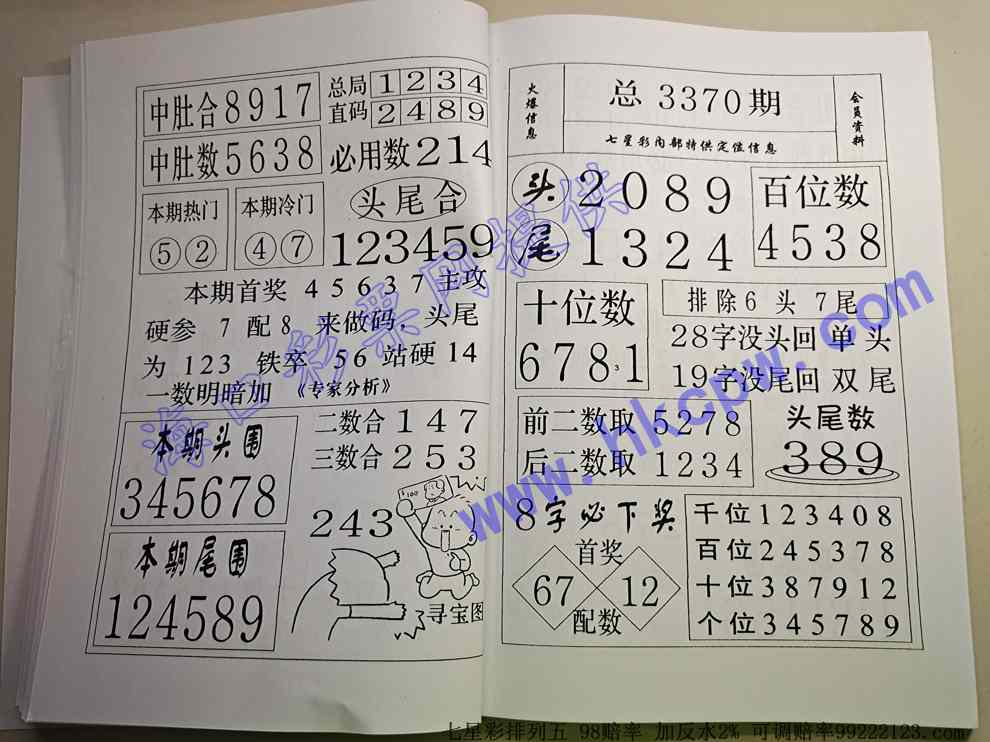 中肚合8917
总局 1 2 3 4
直码 2 4 8 9
中肚数5638
必用数214
本期热门
⑤②
本期冷门
④⑦
头尾合
123459
本期首奖 4 5 6 3 7 主攻
硬参 7 配 8 来做码，头尾
为 1 2 3 铁卒 5 6 站硬 1 4
一数明暗加 《专家分析》
本期头围
345678
二数合 1 4 7
三数合 2 5 3
本期尾围
124589
243
$100
寻宝图
火爆信息
总 3370期
七星彩内部特供定位信息
会员资料
头 2 0 8 9
尾 1 3 2 4
百位数
4538
十位数
6781
3
排除6 头 7尾
28字没头回 单 头
19字没尾回 双 尾
前二数取 5 2 7 8
后二数取 1 2 3 4
头尾数
389
8字必下奖
首奖
67 12
配数
千位 1 2 3 4 0 8
百位 2 4 5 3 7 8
十位 3 8 7 9 1 2
个位 3 4 5 7 8 9
海口彩票网提供
www.hkcpw.com
七星彩排列五 98赔率 加反水2% 可调赔率99222123.com